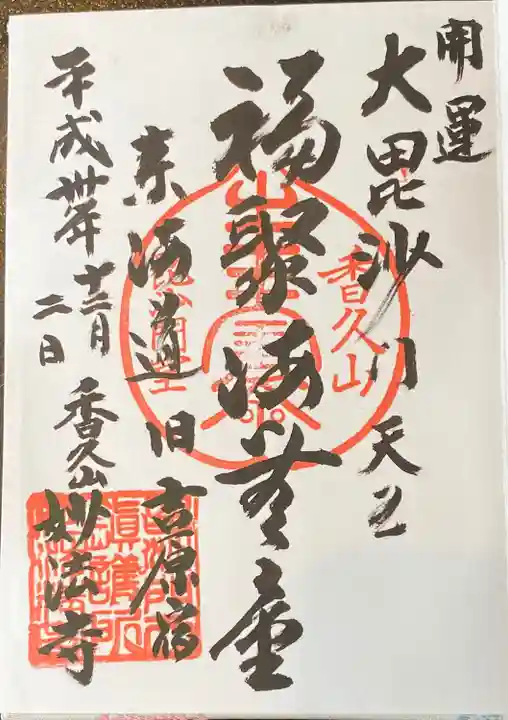 開運
大毘沙門天王
福聚海無量
東海道旧吉原宿
平成卅年十二月
二日
香久山
妙法寺
香久山